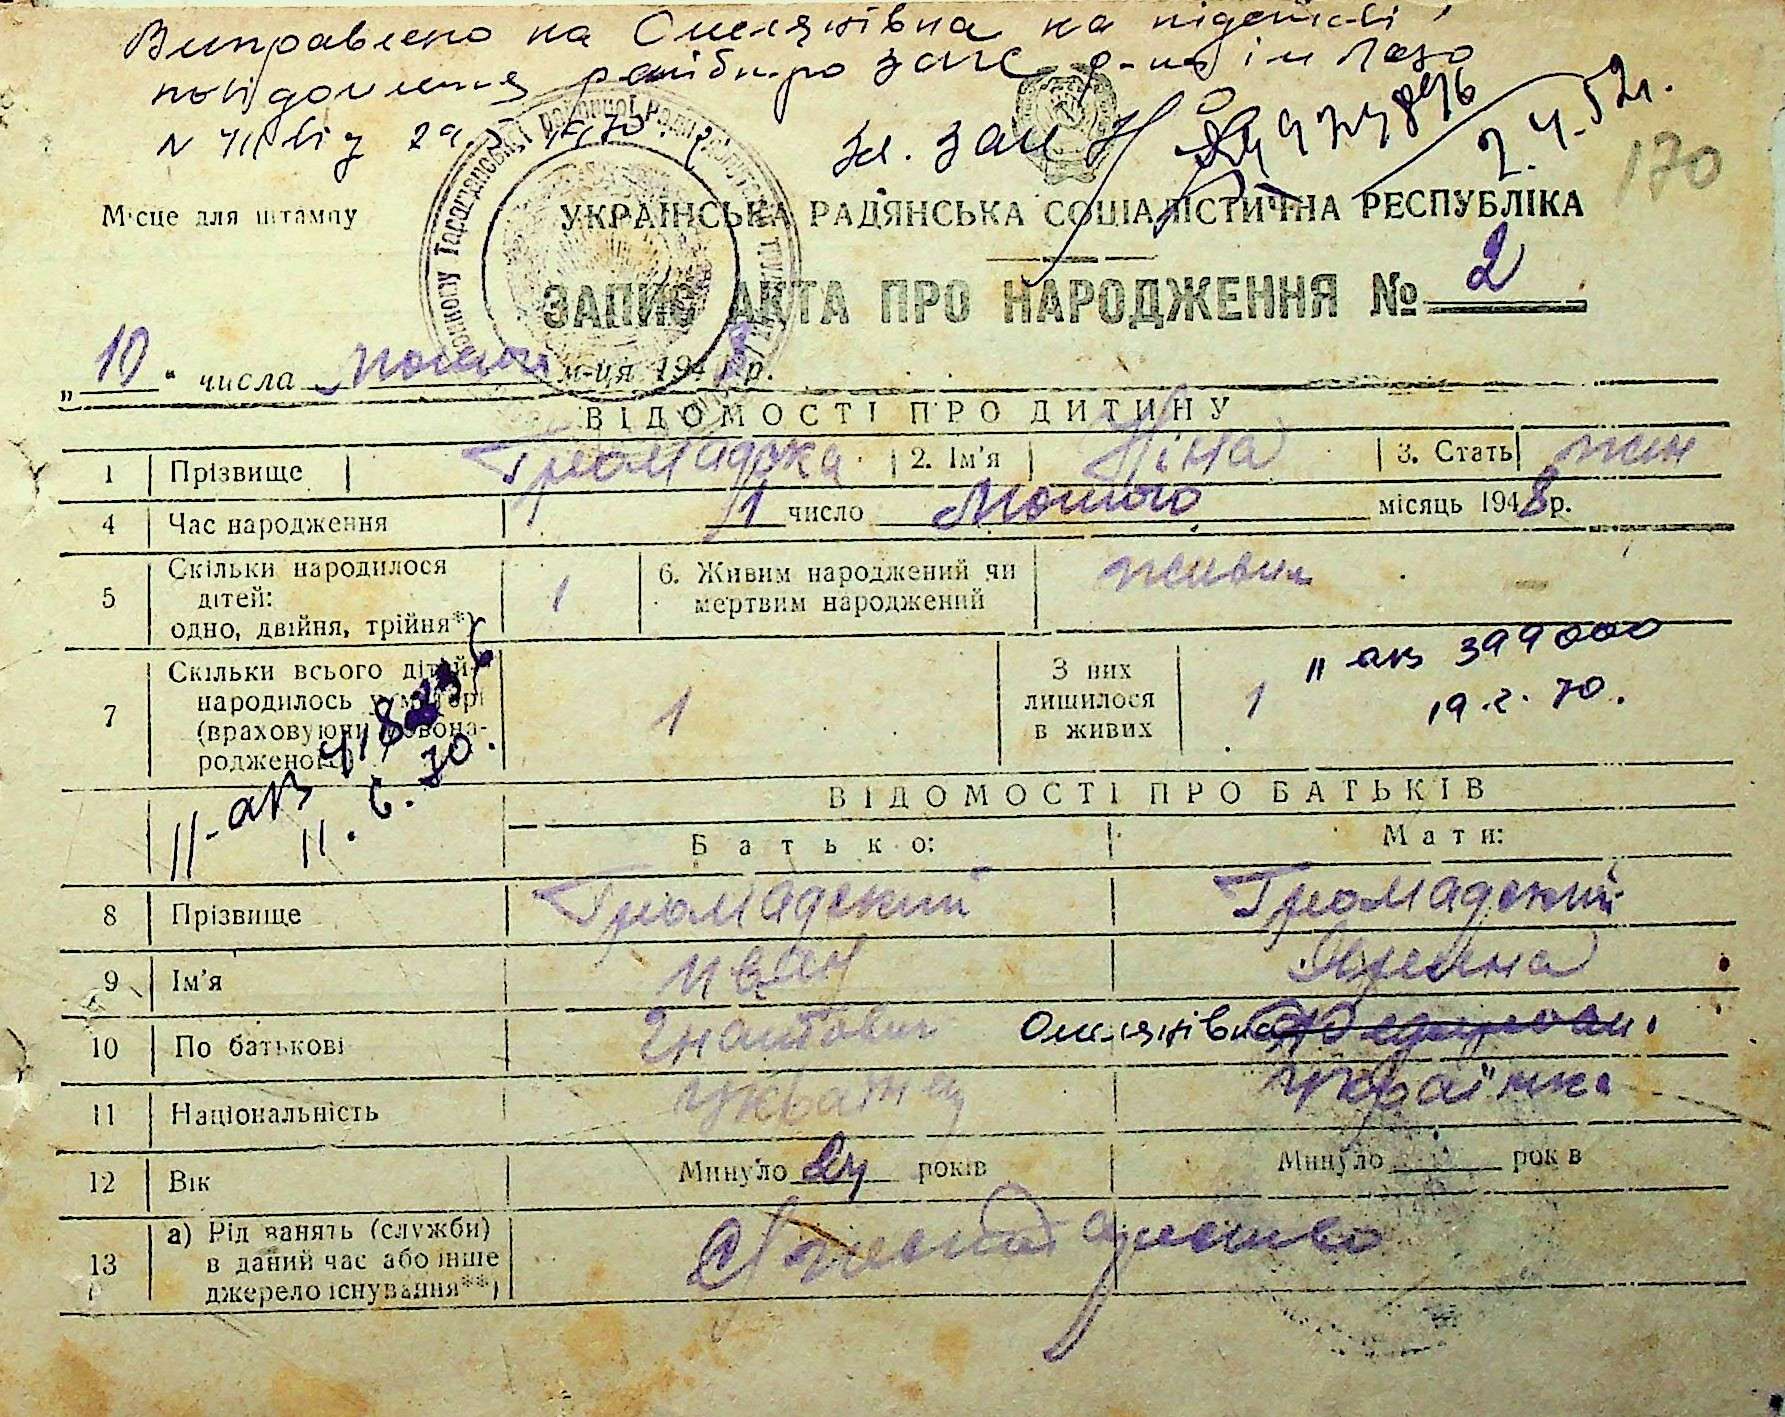 Виправлено на Омелянівна на підставі
повідомлення райбюро загс р-ну ім Лазо
N від 29. 1970 р
170
Місце для штампу
УКРАЇНСЬКА РАДЯНСЬКА СОЦІАЛІСТИЧНА РЕСПУБЛІКА
ЗАПИС АКТА ПРО НАРОДЖЕННЯ № 2
„10“ числа Лютого м-ця 1948 р.
ВІДОМОСТІ ПРО ДИТИНУ
1 Прізвище Громадска 2. Ім'я Ніна 3. Стать жін
4 Час народження 1 число Лютого місяць 1948 р.
5 Скільки народилося дітей: одно, двійня, трійня*) 1 6. Живим народжений чи мертвим народжений живим
7 Скільки всього дітей народилось у матері (враховуючи новонародженого) 1 З них лишилося в живих 1
ІІ ак 399000
19.2.70.
ІІ-АК
11.6.70.
ВІДОМОСТІ ПРО БАТЬКІВ
Батько: Мати:
8 Прізвище Громадский Громадский
9 Ім'я Иван
10 По батькові Гнатович Омелянівна
11 Національність Українка
12 Вік Минуло 24 років Минуло років
13 а) Рід занять (служби) в даний час або інше джерело існування**)